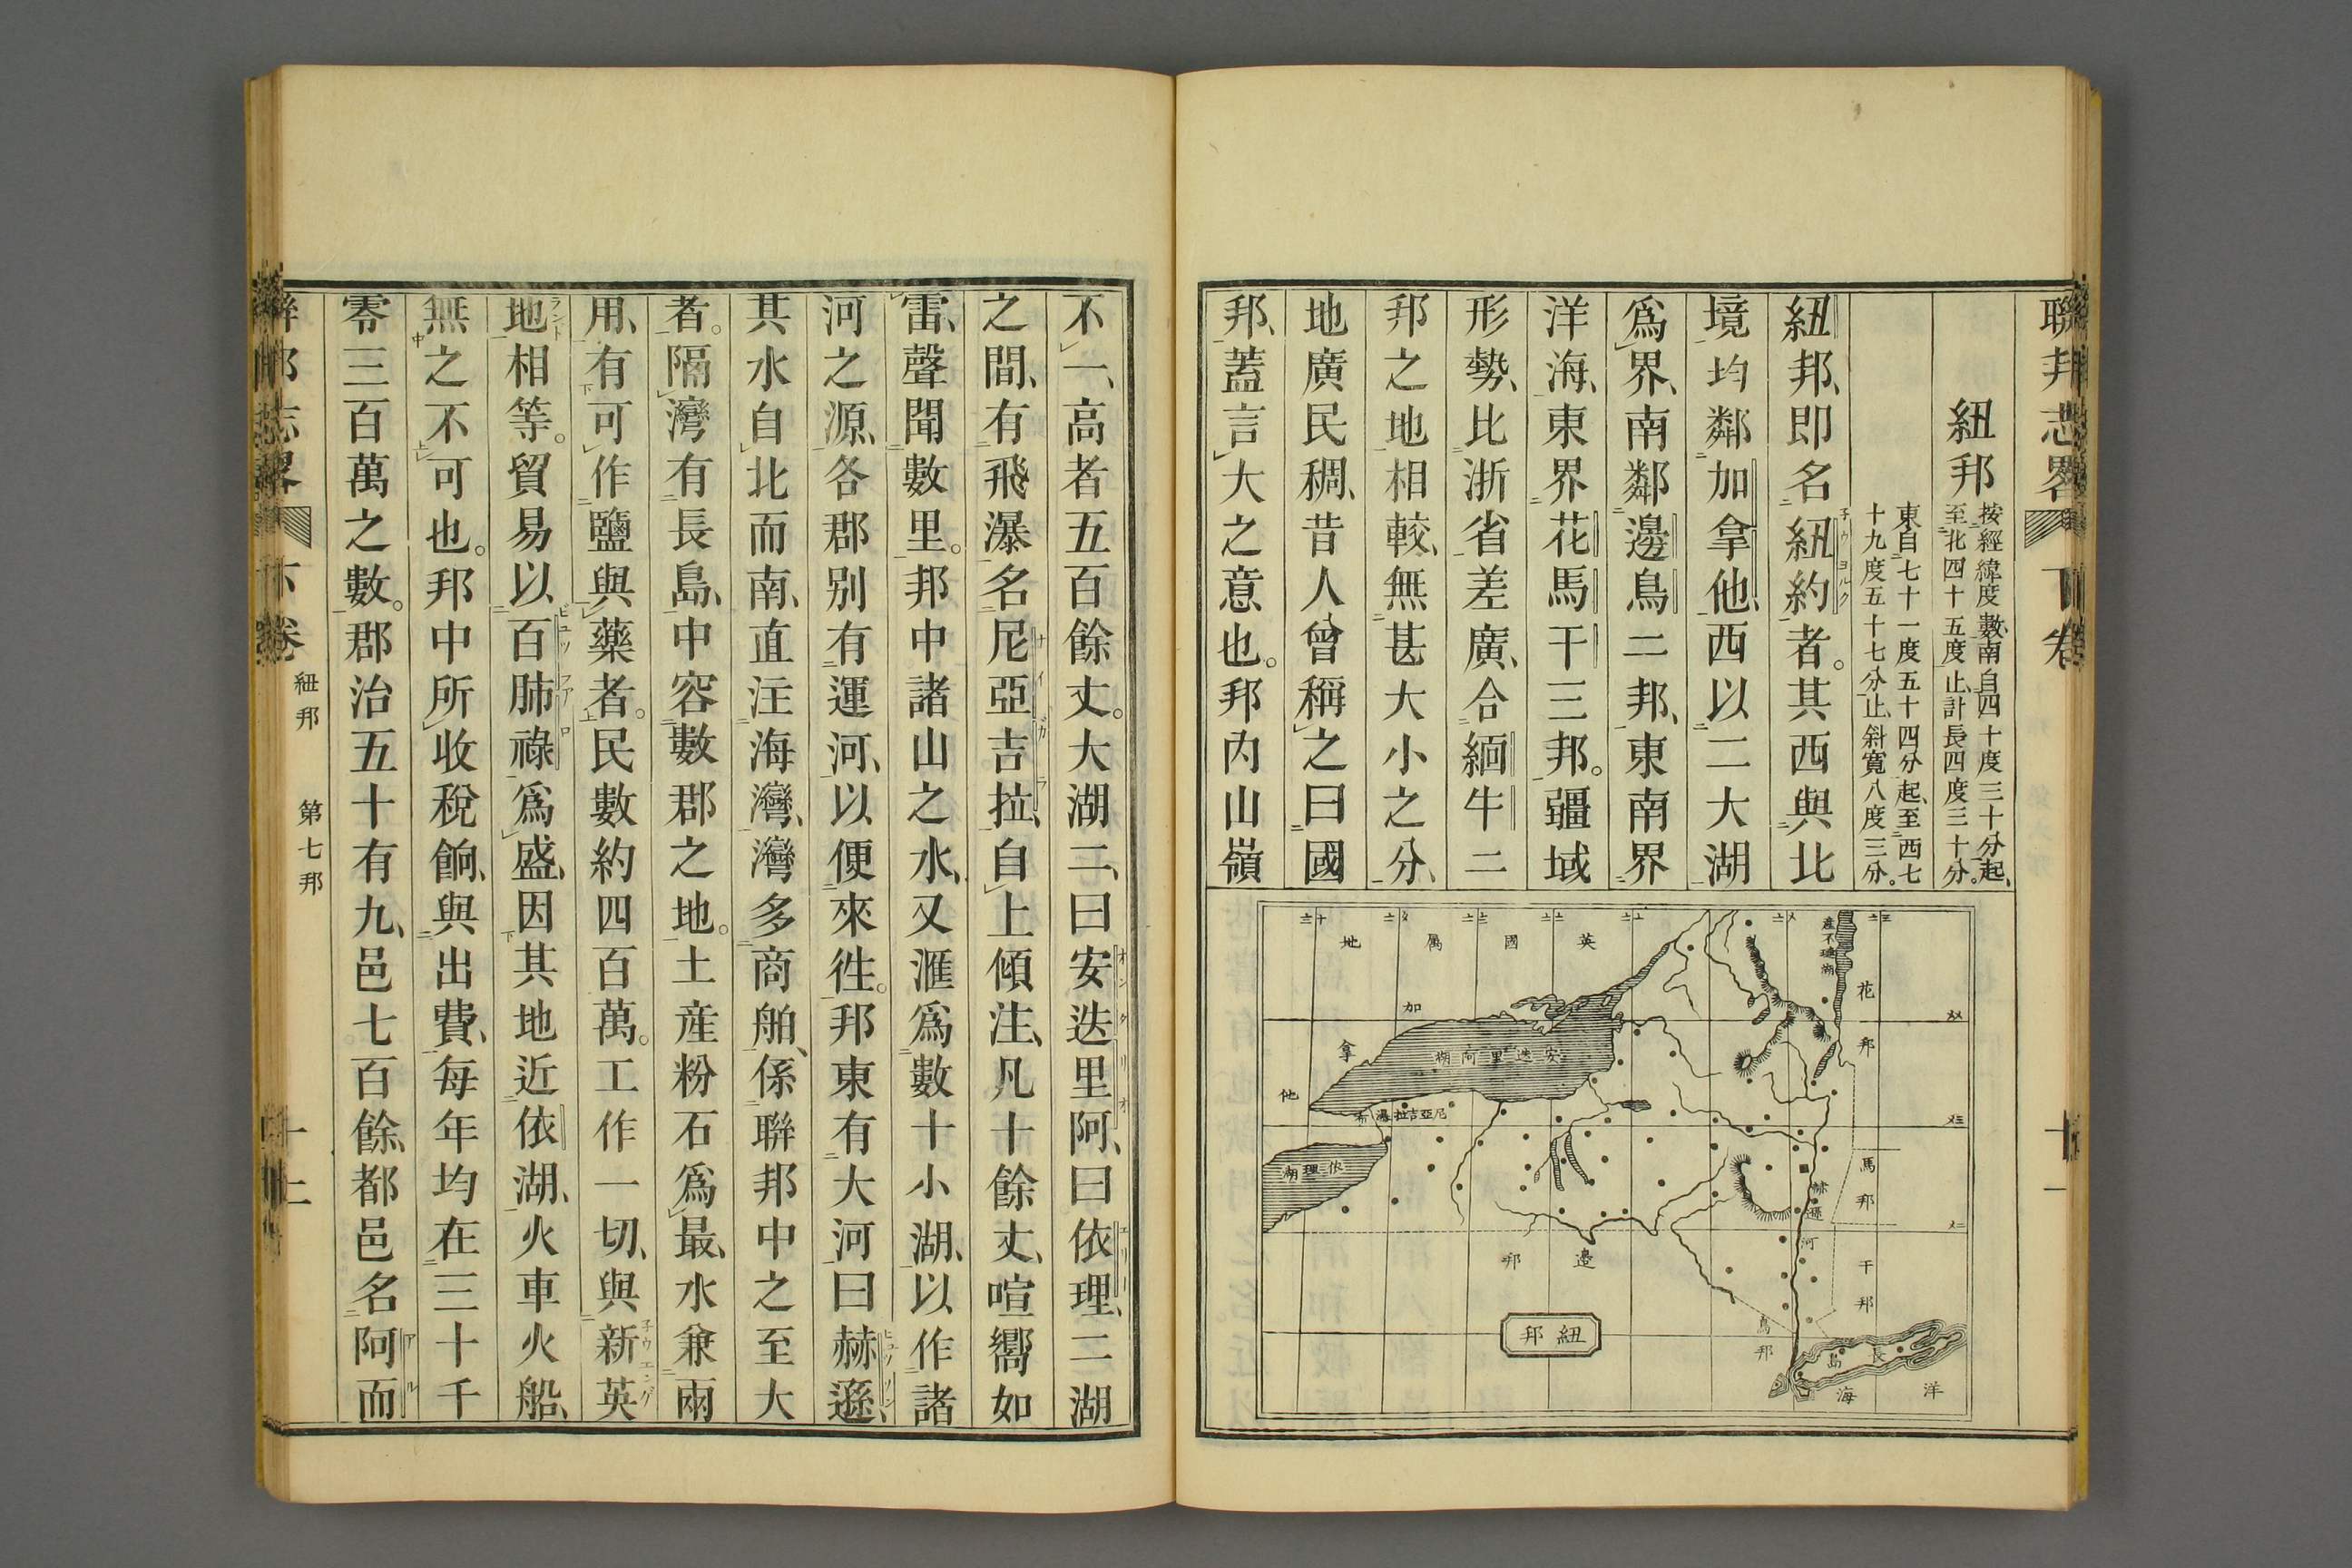 聯邦志畧 下卷
紐邦
按經緯度數、南自四十度三十分起、
至北四十五度止、計長四度三十分。
東自七十一度五十四分起、至西七
十九度五十七分止、斜寬八度三分。
紐邦、即名紐約者。其西與北
子ウヨルク
境均鄰加拿他、西以二大湖
爲界、南鄰邊鳥二邦、東南界
洋海、東界花馬干三邦。疆域
形勢、比浙省差廣、合緬牛二
邦之地相較、無甚大小之分、
地廣民稠、昔人曾稱之曰國
邦、蓋言大之意也。邦內山嶺
英國屬地
加拿他
安迭里阿湖
尼亞吉拉瀑布
依理湖
花邦
馬邦
干邦
赫遜河
邊邦
鳥邦
長島
洋海
紐邦
不一、高者五百餘丈。大湖二、曰安迭里阿、曰依理、二湖
オンタリオ
エリー
之間、有飛瀑名尼亞吉拉、自上傾注、凡十餘丈、喧嚮如
ナイガラ
雷、聲聞數里。邦中諸山之水、又滙爲數十小湖、以作諸
河之源、各郡别有運河、以便來徃。邦東有大河曰赫遜、
ヒユソン
其水自北而南、直注海灣、灣多商舶、係聯邦中之至大
者。隔灣有長島、中容數郡之地。土産粉石爲最、水兼兩
用、有可作鹽與藥者。民數約四百萬。工作一切、與新英
子ウエング
地相等。貿易以百肺祿爲盛、因其地近依湖、火車火船、
ランド
ビユッファロ
無之不可也。邦中所收稅餉、與出費、每年均在三十千
零三百萬之數。郡治五十有九、邑七百餘、都邑名阿而
アル
聯邦志畧 下卷 紐邦 第七邦 十二